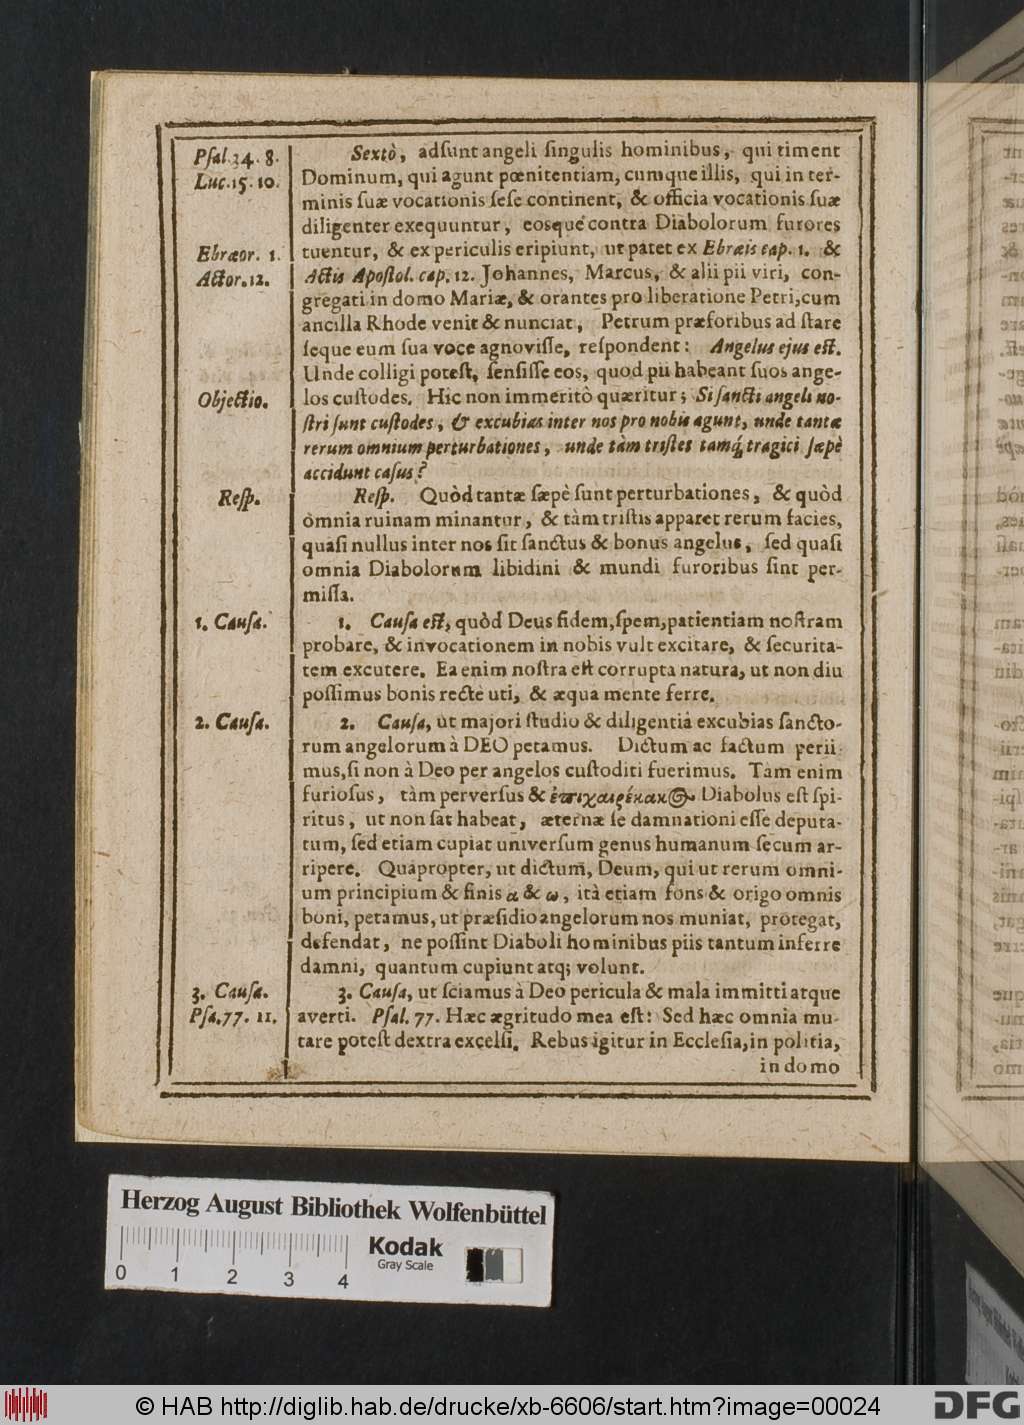 Psal.34.8.
Luc.15.10.
Sextò, adsunt angeli singulis hominibus, qui timent
Dominum, qui agunt pœnitentiam, cumque illis, qui in ter-
minis suæ vocationis sese continent, & officia vocationis suæ
diligenter exequuntur, eosque contra Diabolorum furores
Ebræor. 1.
tuentur, & ex periculis eripiunt, ut patet ex Ebræis cap. 1. &
Actor. 12.
Actis Apostol. cap. 12. Johannes, Marcus, & alii pii viri, con-
gregati in domo Mariæ, & orantes pro liberatione Petri, cum
ancilla Rhode venit & nunciat, Petrum præ foribus ad stare
seque eum sua voce agnovisse, respondent: Angelus ejus est.
Unde colligi potest, sensisse eos, quod pii habeant suos ange-
Objectio.
los custodes. Hic non immeritò quæritur; Si sancti angeli no-
stri sunt custodes, & excubias inter nos pro nobis agunt, unde tantæ
rerum omnium perturbationes, unde tàm tristes tamq́ tragici sæpè
accidunt casus?
Resp.
Resp. Quòd tantæ sæpè sunt perturbationes, & quòd
omnia ruinam minantur, & tàm tristis apparet rerum facies,
quasi nullus inter nos sit sanctus & bonus angelus, sed quasi
omnia Diabolorum libidini & mundi furoribus sint per-
missa.
1. Causa.
1. Causa est, quòd Deus fidem, spem, patientiam nostram
probare, & invocationem in nobis vult excitare, & securita-
tem excutere. Ea enim nostra est corrupta natura, ut non diu
possimus bonis rectè uti, & æqua mente ferre.
2. Causa.
2. Causa, ut majori studio & diligentiâ excubias sancto-
rum angelorum à DEO petamus. Dictum ac factum perii-
mus, si non à Deo per angelos custoditi fuerimus. Tam enim
furiosus, tàm perversus & ἐπιχαιρέκακος Diabolus est spi-
ritus, ut non sat habeat, æternæ se damnationi esse deputa-
tum, sed etiam cupiat universum genus humanum secum ar-
ripere. Quapropter, ut dictum, Deum, qui ut rerum omni-
um principium & finis α & ω, ità etiam fons & origo omnis
boni, petamus, ut præsidio angelorum nos muniat, protegat,
defendat, ne possint Diaboli hominibus piis tantum inferre
damni, quantum cupiunt atq; volunt.
3. Causa.
3. Causa, ut sciamus à Deo pericula & mala immitti atque
Psa.77. 11.
averti. Psal. 77. Hæc ægritudo mea est: Sed hæc omnia mu-
tare potest dextra excelsi. Rebus igitur in Ecclesia, in politia,
in domo
Herzog August Bibliothek Wolfenbüttel
0 1 2 3 4
Kodak
Gray Scale
© HAB http://diglib.hab.de/drucke/xb-6606/start.htm?image=00024
DFG